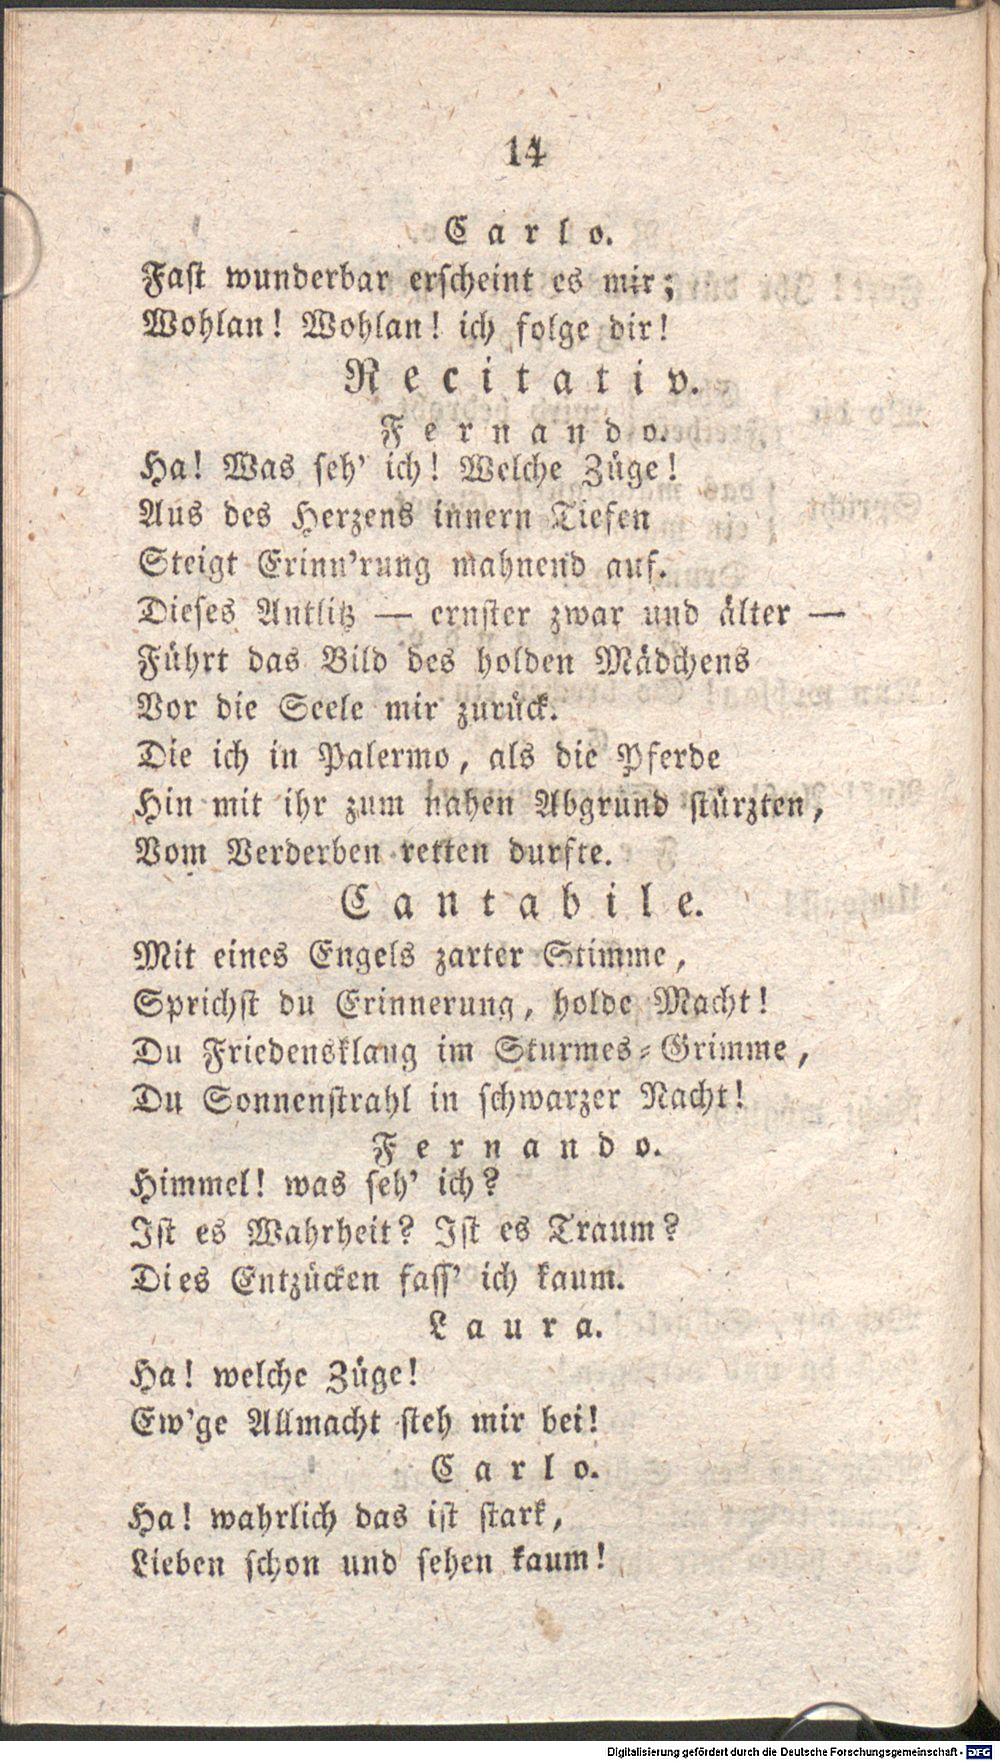 14
Carlo.
Fast wunderbar erscheint es mir;
Wohlan! Wohlan! ich folge dir!
Recitativ.
Fernando.
Ha! Was seh' ich! Welche Züge!
Aus des Herzens innern Tiefen
Steigt Erinn'rung mahnend auf.
Dieses Antlitz — ernster zwar und älter —
Führt das Bild des holden Mädchens
Vor die Seele mir zurück.
Die ich in Palermo, als die Pferde
Hin mit ihr zum nahen Abgrund stürzten,
Vom Verderben retten durfte.
Cantabile.
Mit eines Engels zarter Stimme,
Sprichst du Erinnerung, holde Macht!
Du Friedensklang im Sturmes-Grimme,
Du Sonnenstrahl in schwarzer Nacht!
Fernando.
Himmel! was seh' ich?
Ist es Wahrheit? Ist es Traum?
Dies Entzücken fass' ich kaum.
Laura.
Ha! welche Züge!
Ew'ge Allmacht steh mir bei!
Carlo.
Ha! wahrlich das ist stark,
Lieben schon und sehen kaum!
Digitalisierung gefördert durch die Deutsche Forschungsgemeinschaft - DFG